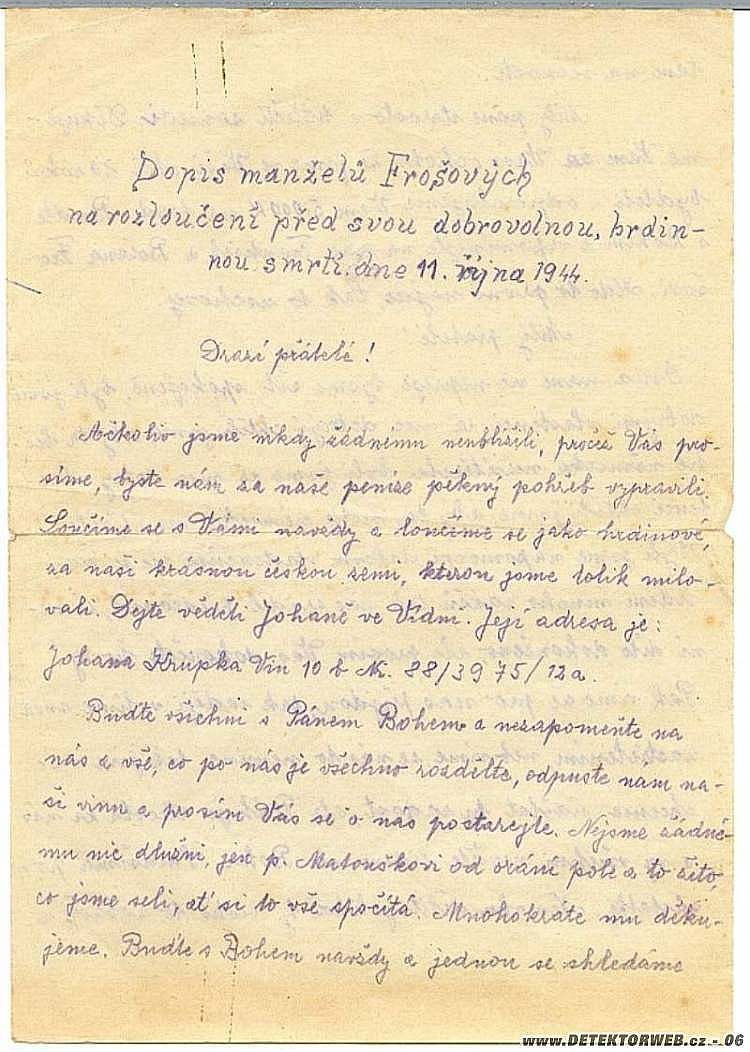 Dopis manželů Frošových
na rozloučení před svou dobrovolnou, hrdin-
nou smrtí. dne 11. října 1944.
Drazí přátelé!
Ačkoliv jsme nikdy žádnému neublížili, pročež Vás pro-
síme, byste nám za naše peníze pěkný pohřeb vypravili.
Loučíme se s Vámi navždy a loučíme se jako hrdinové,
za naši krásnou českou zemi, kterou jsme tolik milo-
vali. Dejte věděti Johaně ve Vídni. Její adresa je:
Johana Krupka Vin 10 b Nr. 88/39 75/12a.
Buďte všichni s Pánem Bohem a nezapomeňte na
nás a vše, co po nás je všechno rozdělte, odpusťte nam na-
ši vinu a prosím Vás se o nás postarejte. Nejsme žádné-
mu nic dlužni, jen p. Matouškovi od orání pole a to žito,
co jsme seli, ať si to vše spočítá. Mnohokráte mu děku-
jeme. Buďte s Bohem navždy a jednou se shledáme
www.DETEKTORWEB.cz - 06